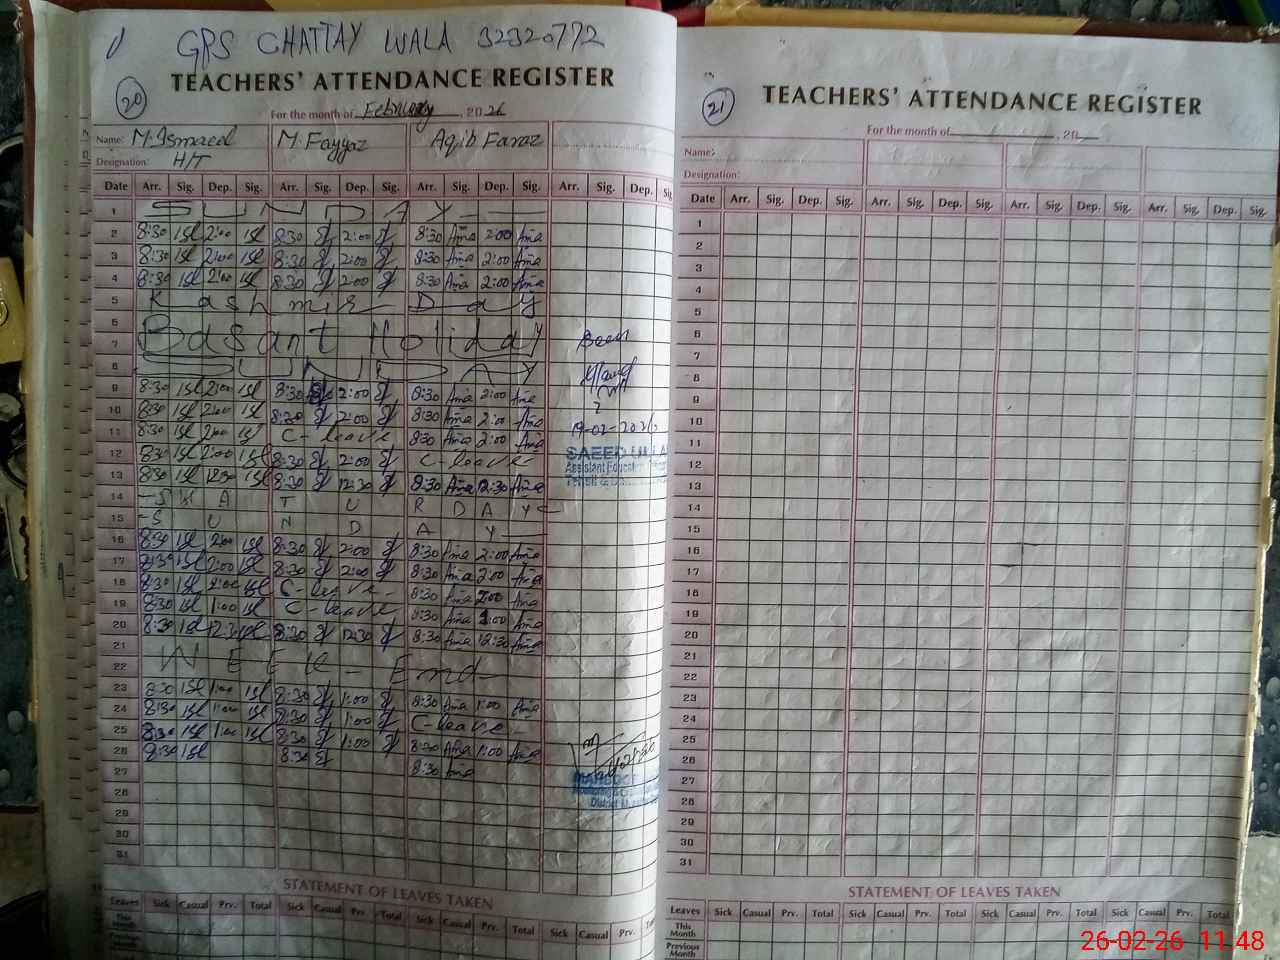 GPS CHATTAY WALA 32320772
TEACHERS' ATTENDANCE REGISTER
20
For the month of February, 2026
Name: M. Ismaeel M. Fayyaz Aqib Faraz
Designation: H/T
Date Arr. Sig. Dep. Sig. Arr. Sig. Dep. Sig. Arr. Sig. Dep. Sig. Arr. Sig. Dep. Sig
1 SUNDAY
2 8:30 2:00 8:30 2:00 8:30 2:00
3 8:30 2:00 8:30 2:00 8:30 2:00
4 8:30 2:00 8:30 2:00 8:30 2:00
5 Kashmir Day
6
7 Basant Holiday
8 SUNDAY
9 8:30 2:00 8:30 2:00 8:30 2:00
10 8:30 2:00 8:30 2:00 8:30 2:00
11 8:30 2:00 C-leave 8:30 2:00
12 8:30 2:00 8:30 2:00 C-leave
13 8:30 12:30 8:30 12:30 8:30 12:30
14 SATURDAY
15 SUNDAY
16 8:30 2:00 8:30 2:00 8:30 2:00
17 8:30 2:00 8:30 2:00 8:30 2:00
18 8:30 2:00 C-leave 8:30 2:00
19 8:30 1:00 C-leave 8:30 1:00
20 8:30 12:30 8:30 12:30 8:30 12:30
21
22 WEEK-End
23 8:30 1:00 8:30 1:00 8:30 1:00
24 8:30 1:00 8:30 1:00 C-leave
25 8:30 1:00 8:30 1:00 8:30 1:00
26 8:30 8:30 8:30
27
28
29
30
31
19-02-2026
SAEED ULLA
Assistant Education
STATEMENT OF LEAVES TAKEN
Leaves Sick Casual Prv. Total Sick Casual Prv. Total Sick Casual Prv. Total Sick Casual Prv.
This Month
Previous
TEACHERS' ATTENDANCE REGISTER
21
For the month of , 20
Name:
Designation:
Date Arr. Sig. Dep. Sig. Arr. Sig. Dep. Sig. Arr. Sig. Dep. Sig. Arr. Sig. Dep. Sig.
1
2
3
4
5
6
7
8
9
10
11
12
13
14
15
16
17
18
19
20
21
22
23
24
25
26
27
28
29
30
31
STATEMENT OF LEAVES TAKEN
Leaves Sick Casual Prv. Total Sick Casual Prv. Total Sick Casual Prv. Total Sick Casual Prv. Total
This Month
Previous Month
26-02-26 11:48